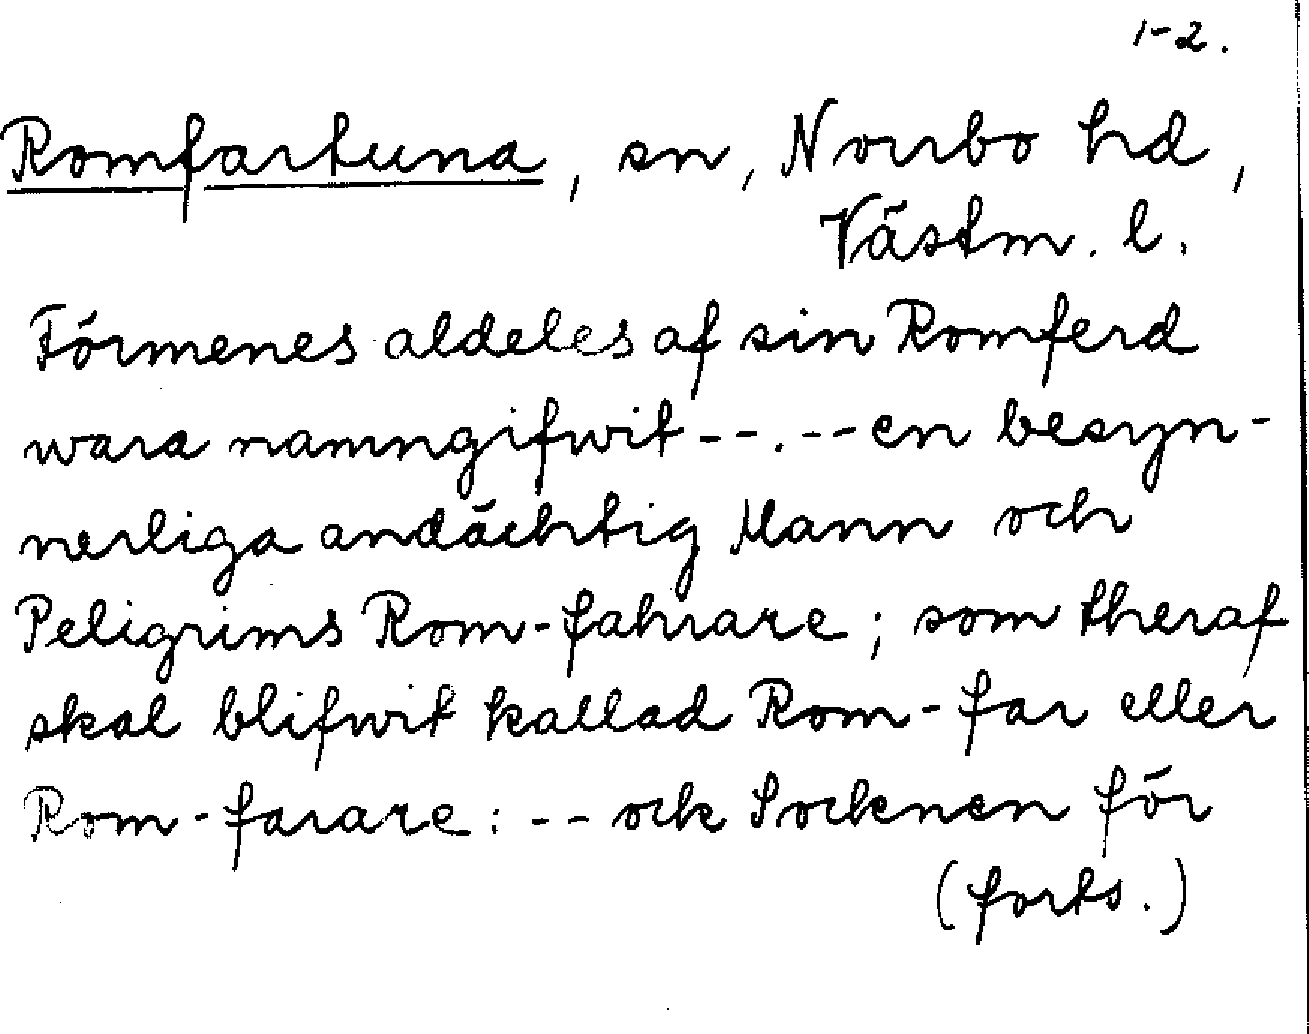 1-2.
Romfartuna, sn, Norrbo hd,
Västm. l.
Förmenes aldeles af sin Romferd
wara namngifwit --.-- en besyn-
nerliga andächtig Mann och
Peligrims Rom-fahrare; som theraf
skal blifwit kallad Rom-far eller
Rom-farare: -- ock Socknen för
(forts.)